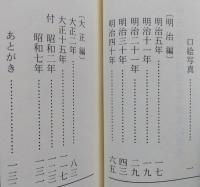 口絵写真……………………一
〔明治編〕
明治五年……………………一七
明治十一年…………………一九
明治二十一年………………二九
明治三十年…………………四三
明治四十年…………………六五
〔大正編〕
大正二年……………………八三
大正十五年…………………
付 昭和二年………………
昭和七年……………………
あとがき……………………